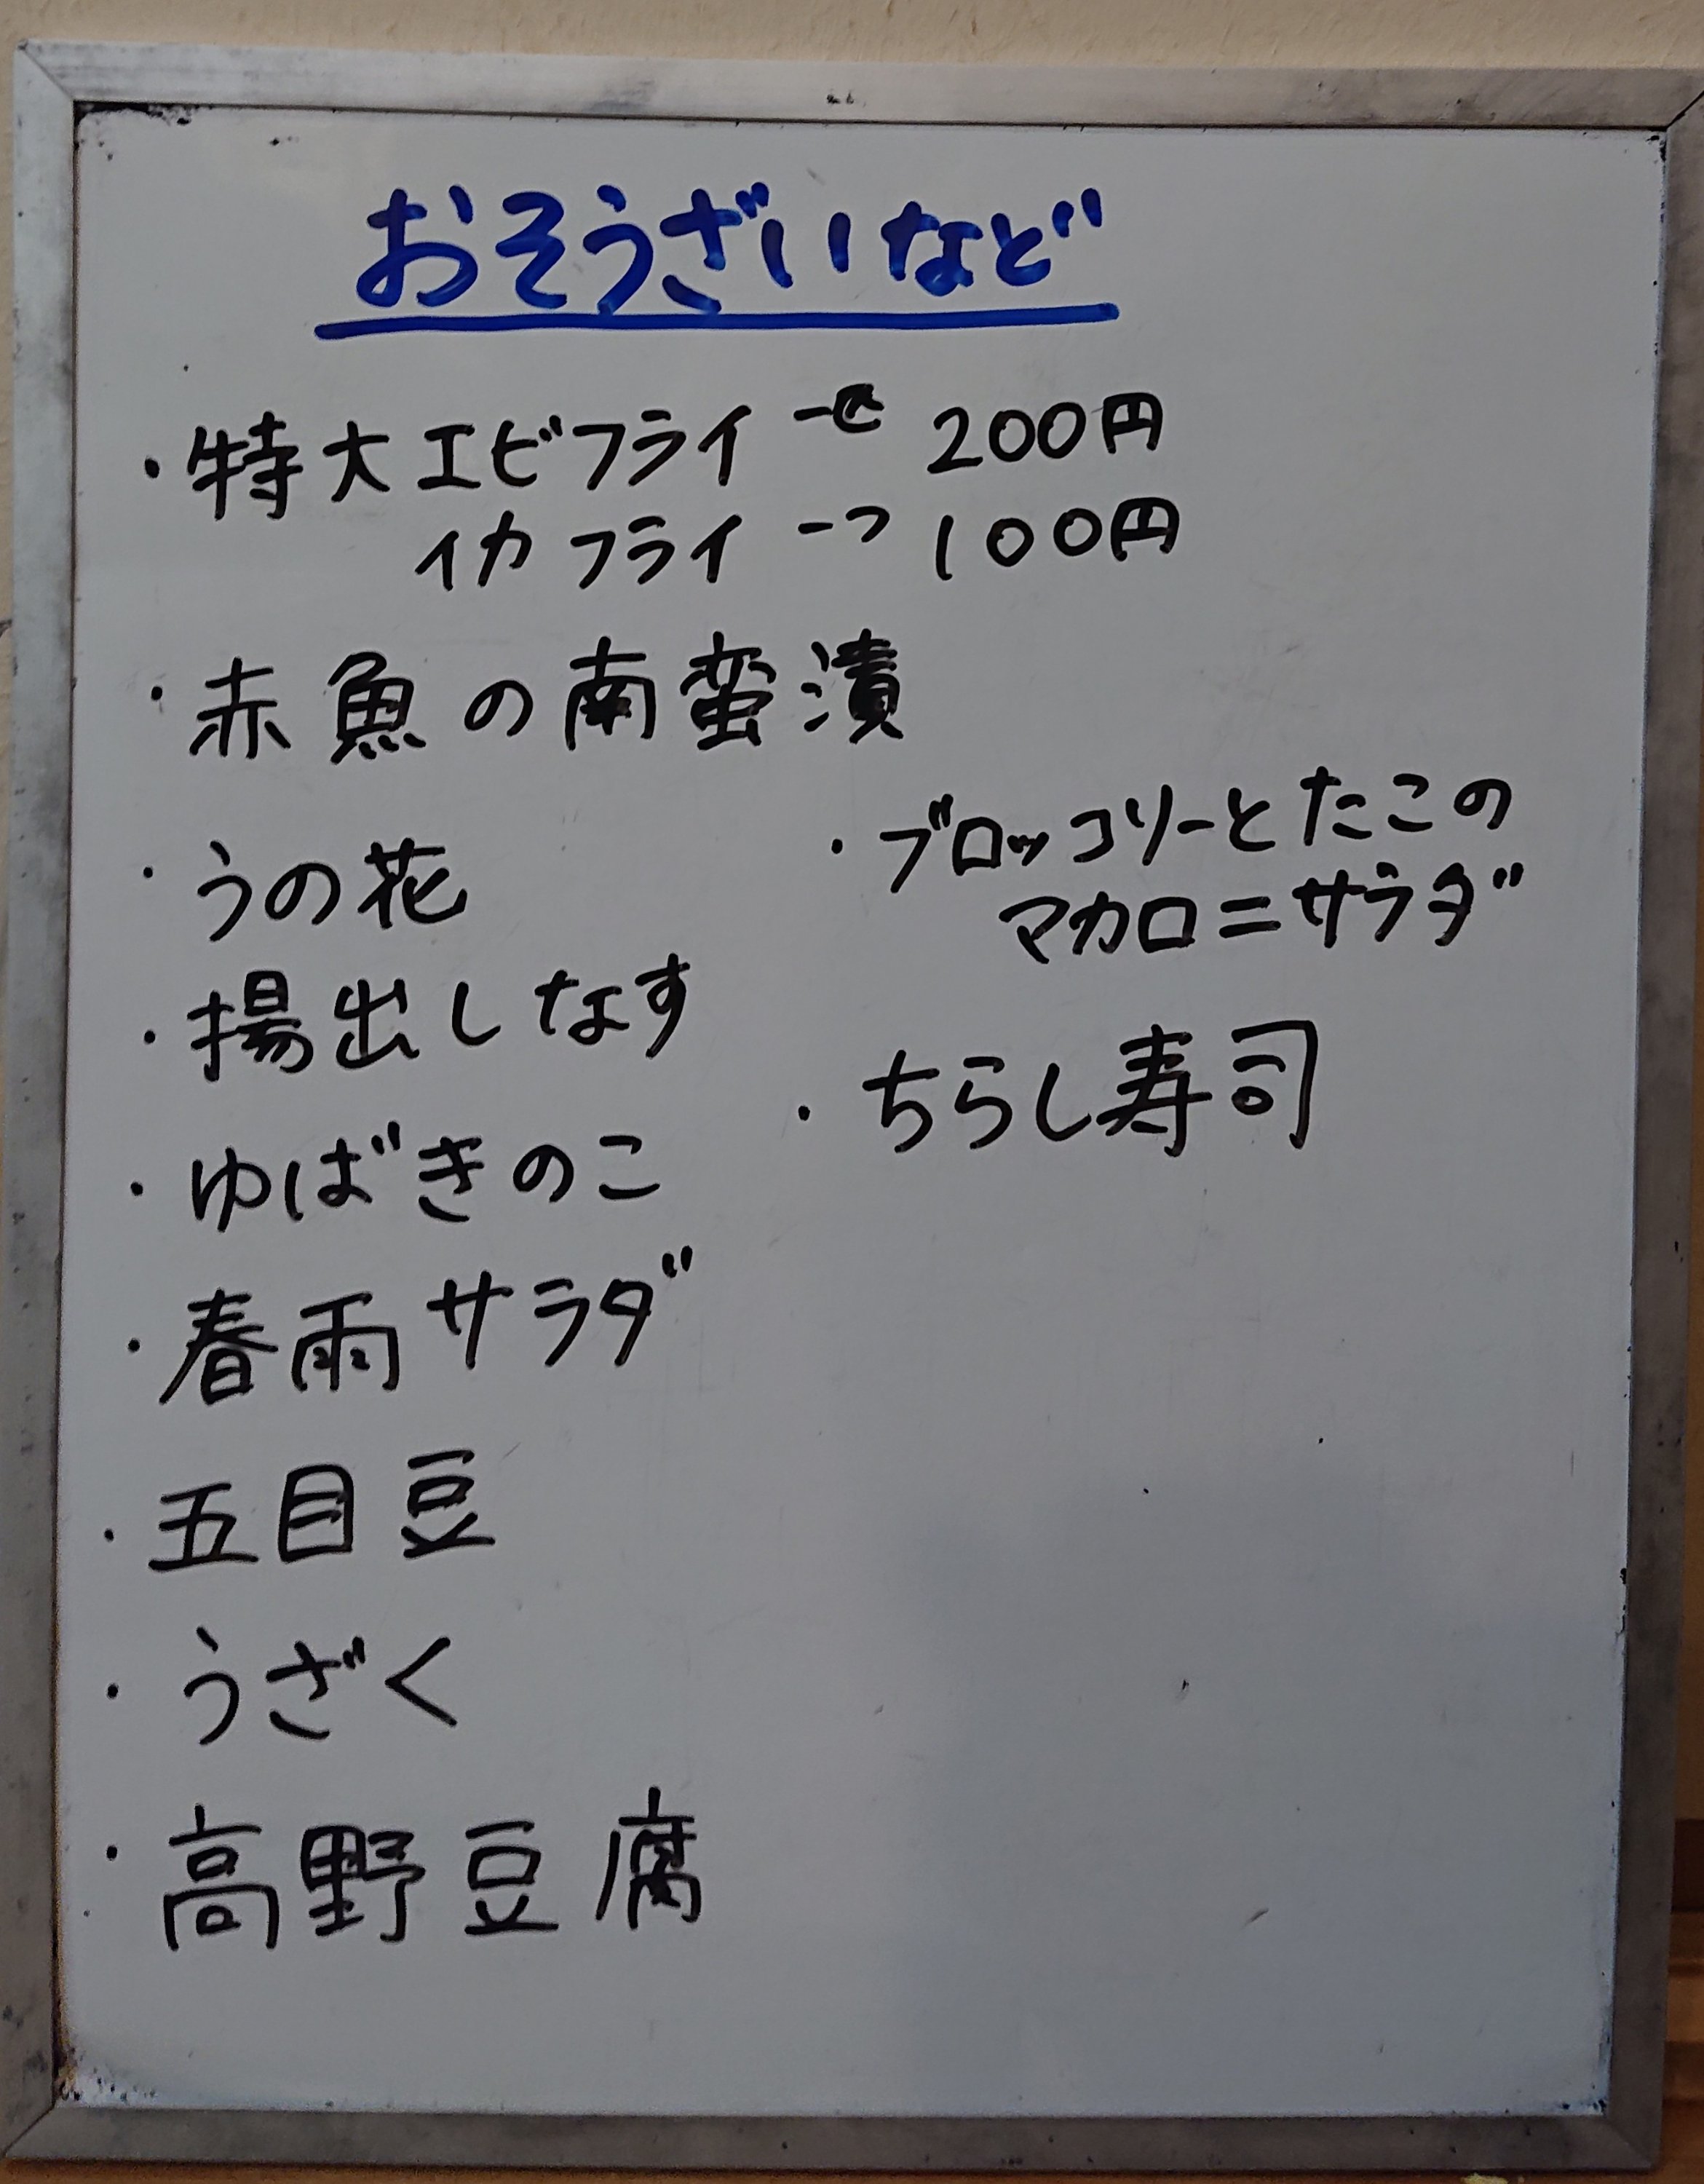 おそうざいなど
・特大エビフライ 一匹 200円
イカフライ 一つ 100円
・赤魚の南蛮漬
・うの花
・揚出しなす
・ゆばきのこ
・春雨サラダ
・五目豆
・うざく
・高野豆腐
・ブロッコリーとたこの
マカロニサラダ
・ちらし寿司